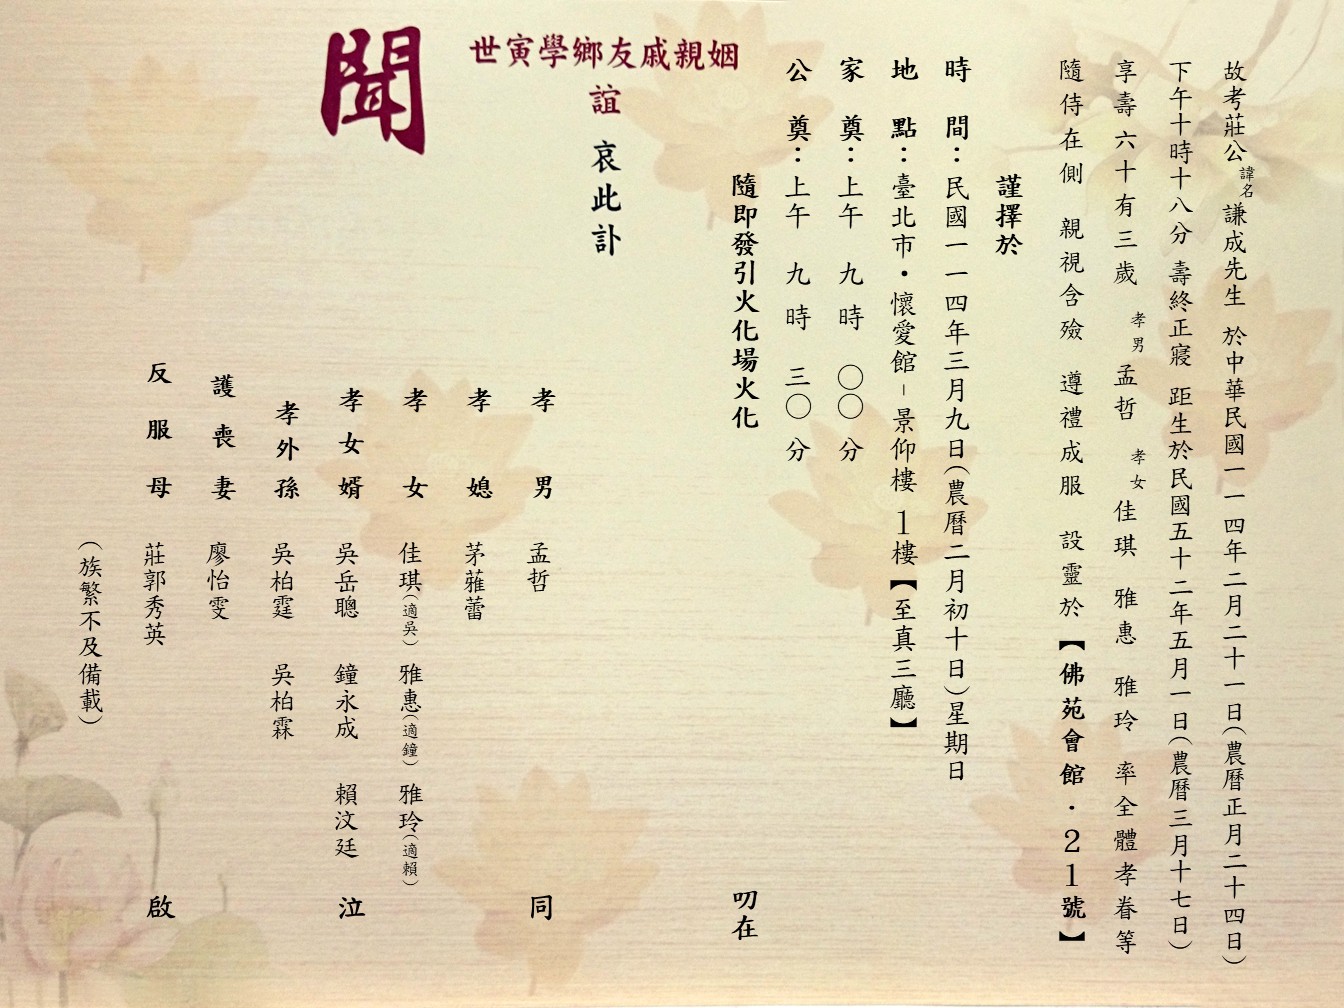 故考莊公諱名謙成先生 於中華民國一一四年二月二十一日(農曆正月二十四日)
下午十時十八分 壽終正寢 距生於民國五十二年五月一日(農曆三月十七日)
享壽六十有三歲 孝男 孟哲 孝女 佳琪 雅惠 雅玲 率全體孝眷等
隨侍在側 親視含殮 遵禮成服 設靈於【佛苑會館．21號】
謹擇於
時間：民國一一四年三月九日(農曆二月初十日)星期日
地點：臺北市•懷愛館–景仰樓1樓【至真三廳】
家奠：上午 九時 〇〇分
公奠：上午 九時 三〇分
隨即發引火化場火化
叨在
姻親戚友鄉學寅世
誼 哀此訃
聞
孝男 孟哲 同
孝媳 茅蕥蕾
孝女 佳琪(適吳) 雅惠(適鐘) 雅玲(適賴)
孝女婿 吳岳聰 鐘永成 賴汶廷 泣
孝外孫 吳柏霆 吳柏霖
護喪妻 廖怡雯
反服母 莊郭秀英 啟
(族繁不及備載)